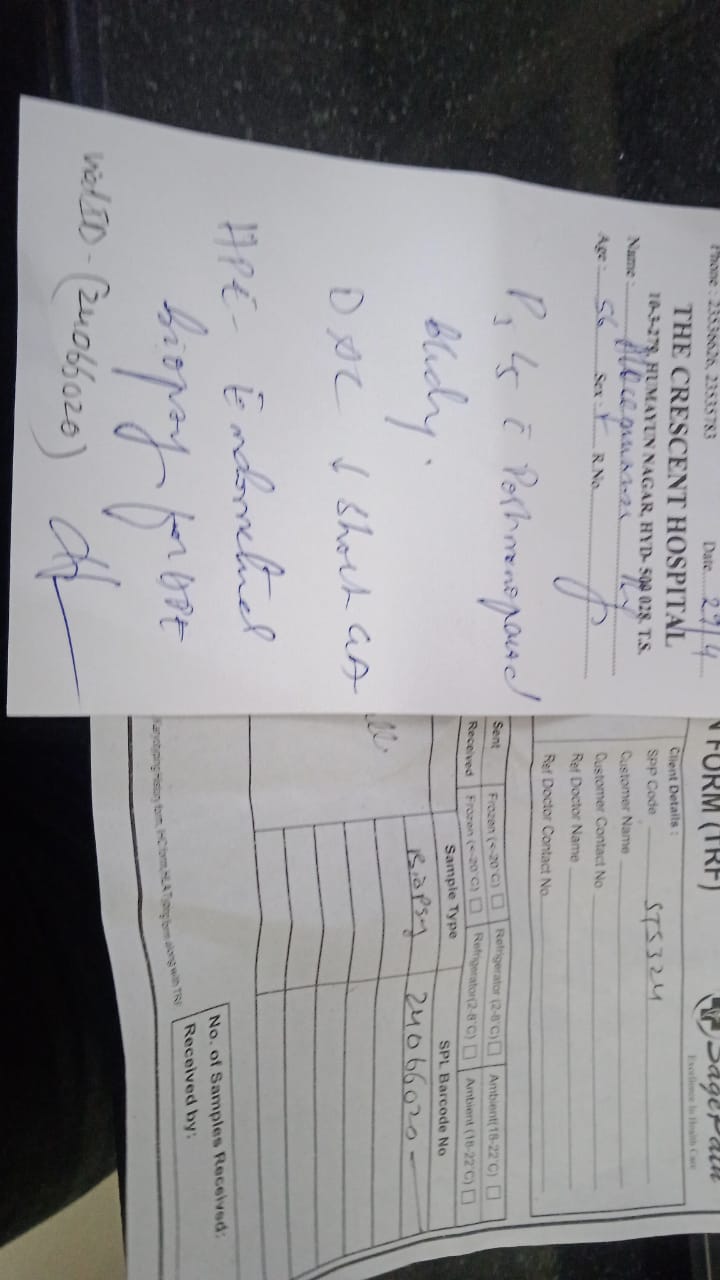 Phone : 23536626, 23535783
Date 29/4
THE CRESCENT HOSPITAL
10-3-279, HUMAYUN NAGAR, HYD- 500 028. T.S.
Name :
Age : 56 Sex : F R.No.
Postmenopausal
D &C
short GA
HPE - Endometrial
biopsy for HPE
Vial ID - (24066020)
FORM (TRF)
SagePath
Excellence In Health Care
Client Details :
SPP Code STS324
Customer Name
Customer Contact No
Ref Doctor Name
Ref Doctor Contact No
Sent Frozen (<-20°C) Refrigerator (2-8°C) Ambient(18-22°C)
Received Frozen (<-20°C) Refrigerator(2-8°C) Ambient (18-22°C)
Sample Type SPL Barcode No
Biopsy 24066020
form along with TRF
No. of Samples Received:
Received by: